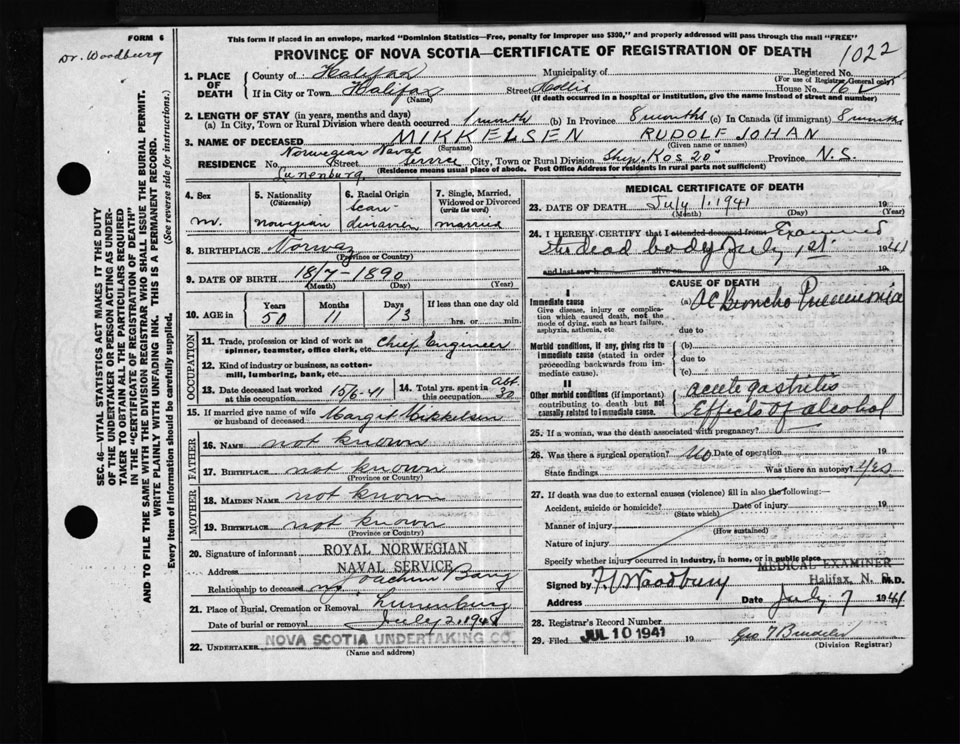 FORM 6
Dr. Woodbury
This form if placed in an envelope, marked "Dominion Statistics—Free, penalty for improper use $300," and properly addressed will pass through the mail "FREE"
PROVINCE OF NOVA SCOTIA—CERTIFICATE OF REGISTRATION OF DEATH
1022
1. PLACE OF DEATH
County of Halifax Municipality of Registered No.
(For use of Registrar General only)
If in City or Town Halifax Street Hollis House No. 162
(Name) (If death occurred in a hospital or institution, give the name instead of street and number)
2. LENGTH OF STAY (in years, months and days)
(a) In City, Town or Rural Division where death occurred 1 months (b) In Province 8 months (c) In Canada (if immigrant) 8 months
3. NAME OF DECEASED MIKKELSEN RUDOLF JOHAN
(Surname) (Given name or names)
RESIDENCE No. Norwegian Naval Street Service City, Town or Rural Division Ship. "Kos 20" Province N.S.
Lunenburg (Residence means usual place of abode. Post Office Address for residents in rural parts not sufficient)
4. Sex
m.
5. Nationality (Citizenship)
6. Racial Origin
Scandinavian
7. Single, Married, Widowed or Divorced (write the word)
married
8. BIRTHPLACE Norway
(Province or Country)
9. DATE OF BIRTH 18/7-1890
(Month) (Day) (Year)
10. AGE in Years 50 Months 11 Days 13 If less than one day old hrs. or min.
OCCUPATION
11. Trade, profession or kind of work as spinner, teamster, office clerk, etc. Chief Engineer
12. Kind of industry or business, as cotton-mill, lumbering, bank, etc.
13. Date deceased last worked at this occupation 15/6-41
14. Total yrs. spent in this occupation Abt. 30
15. If married give name of wife or husband of deceased Margit Mikkelsen
FATHER
16. NAME not known
17. BIRTHPLACE not known
(Province or Country)
MOTHER
18. MAIDEN NAME not known
19. BIRTHPLACE not known
(Province or Country)
20. Signature of informant ROYAL NORWEGIAN
Address NAVAL SERVICE
Joachim Bang
Relationship to deceased no.
21. Place of Burial, Cremation or Removal Lunenburg
Date of burial or removal July 2, 1941
22. UNDERTAKER NOVA SCOTIA UNDERTAKING CO.
(Name and address)
MEDICAL CERTIFICATE OF DEATH
23. DATE OF DEATH July 1. 1941 19
(Month) (Day) (Year)
24. I HEREBY CERTIFY that I attended deceased from Examined
the dead body July 1st 1941
and last saw h alive on 19
CAUSE OF DEATH
I
Immediate cause
Give disease, injury or complication which caused death, not the mode of dying, such as heart failure, asphyxia, asthenia, etc.
(a) Ac Broncho Pneumonia
due to
Morbid conditions, if any, giving rise to immediate cause (stated in order proceeding backwards from immediate cause).
(b)
due to
(c)
II
Other morbid conditions (if important) contributing to death but not causally related to immediate cause.
acute gastritis
Effects of alcohol
25. If a woman, was the death associated with pregnancy?
26. Was there a surgical operation? No Date of operation 19
State findings Was there an autopsy? Yes
27. If death was due to external causes (violence) fill in also the following:—
Accident, suicide or homicide? Date of injury 19
(State which)
Manner of injury
(How sustained)
Nature of injury
Specify whether injury occurred in industry, in home, or in public place
MEDICAL EXAMINER
Signed by F. V. Woodbury Halifax, N. S. M.D.
Address Date July 7 1941
28. Registrar's Record Number
29. Filed JUL 10 1941 19
(Division Registrar)
SEC. 46—VITAL STATISTICS ACT MAKES IT THE DUTY
OF THE UNDERTAKER OR PERSON ACTING AS UNDERTAKER TO OBTAIN ALL THE PARTICULARS REQUIRED
IN THE "CERTIFICATE OF REGISTRATION OF DEATH"
AND TO FILE THE SAME WITH THE DIVISION REGISTRAR WHO SHALL ISSUE THE BURIAL PERMIT.
WRITE PLAINLY WITH UNFADING INK. THIS IS A PERMANENT RECORD.
Every item of Information should be carefully supplied. (See reverse side for instructions.)